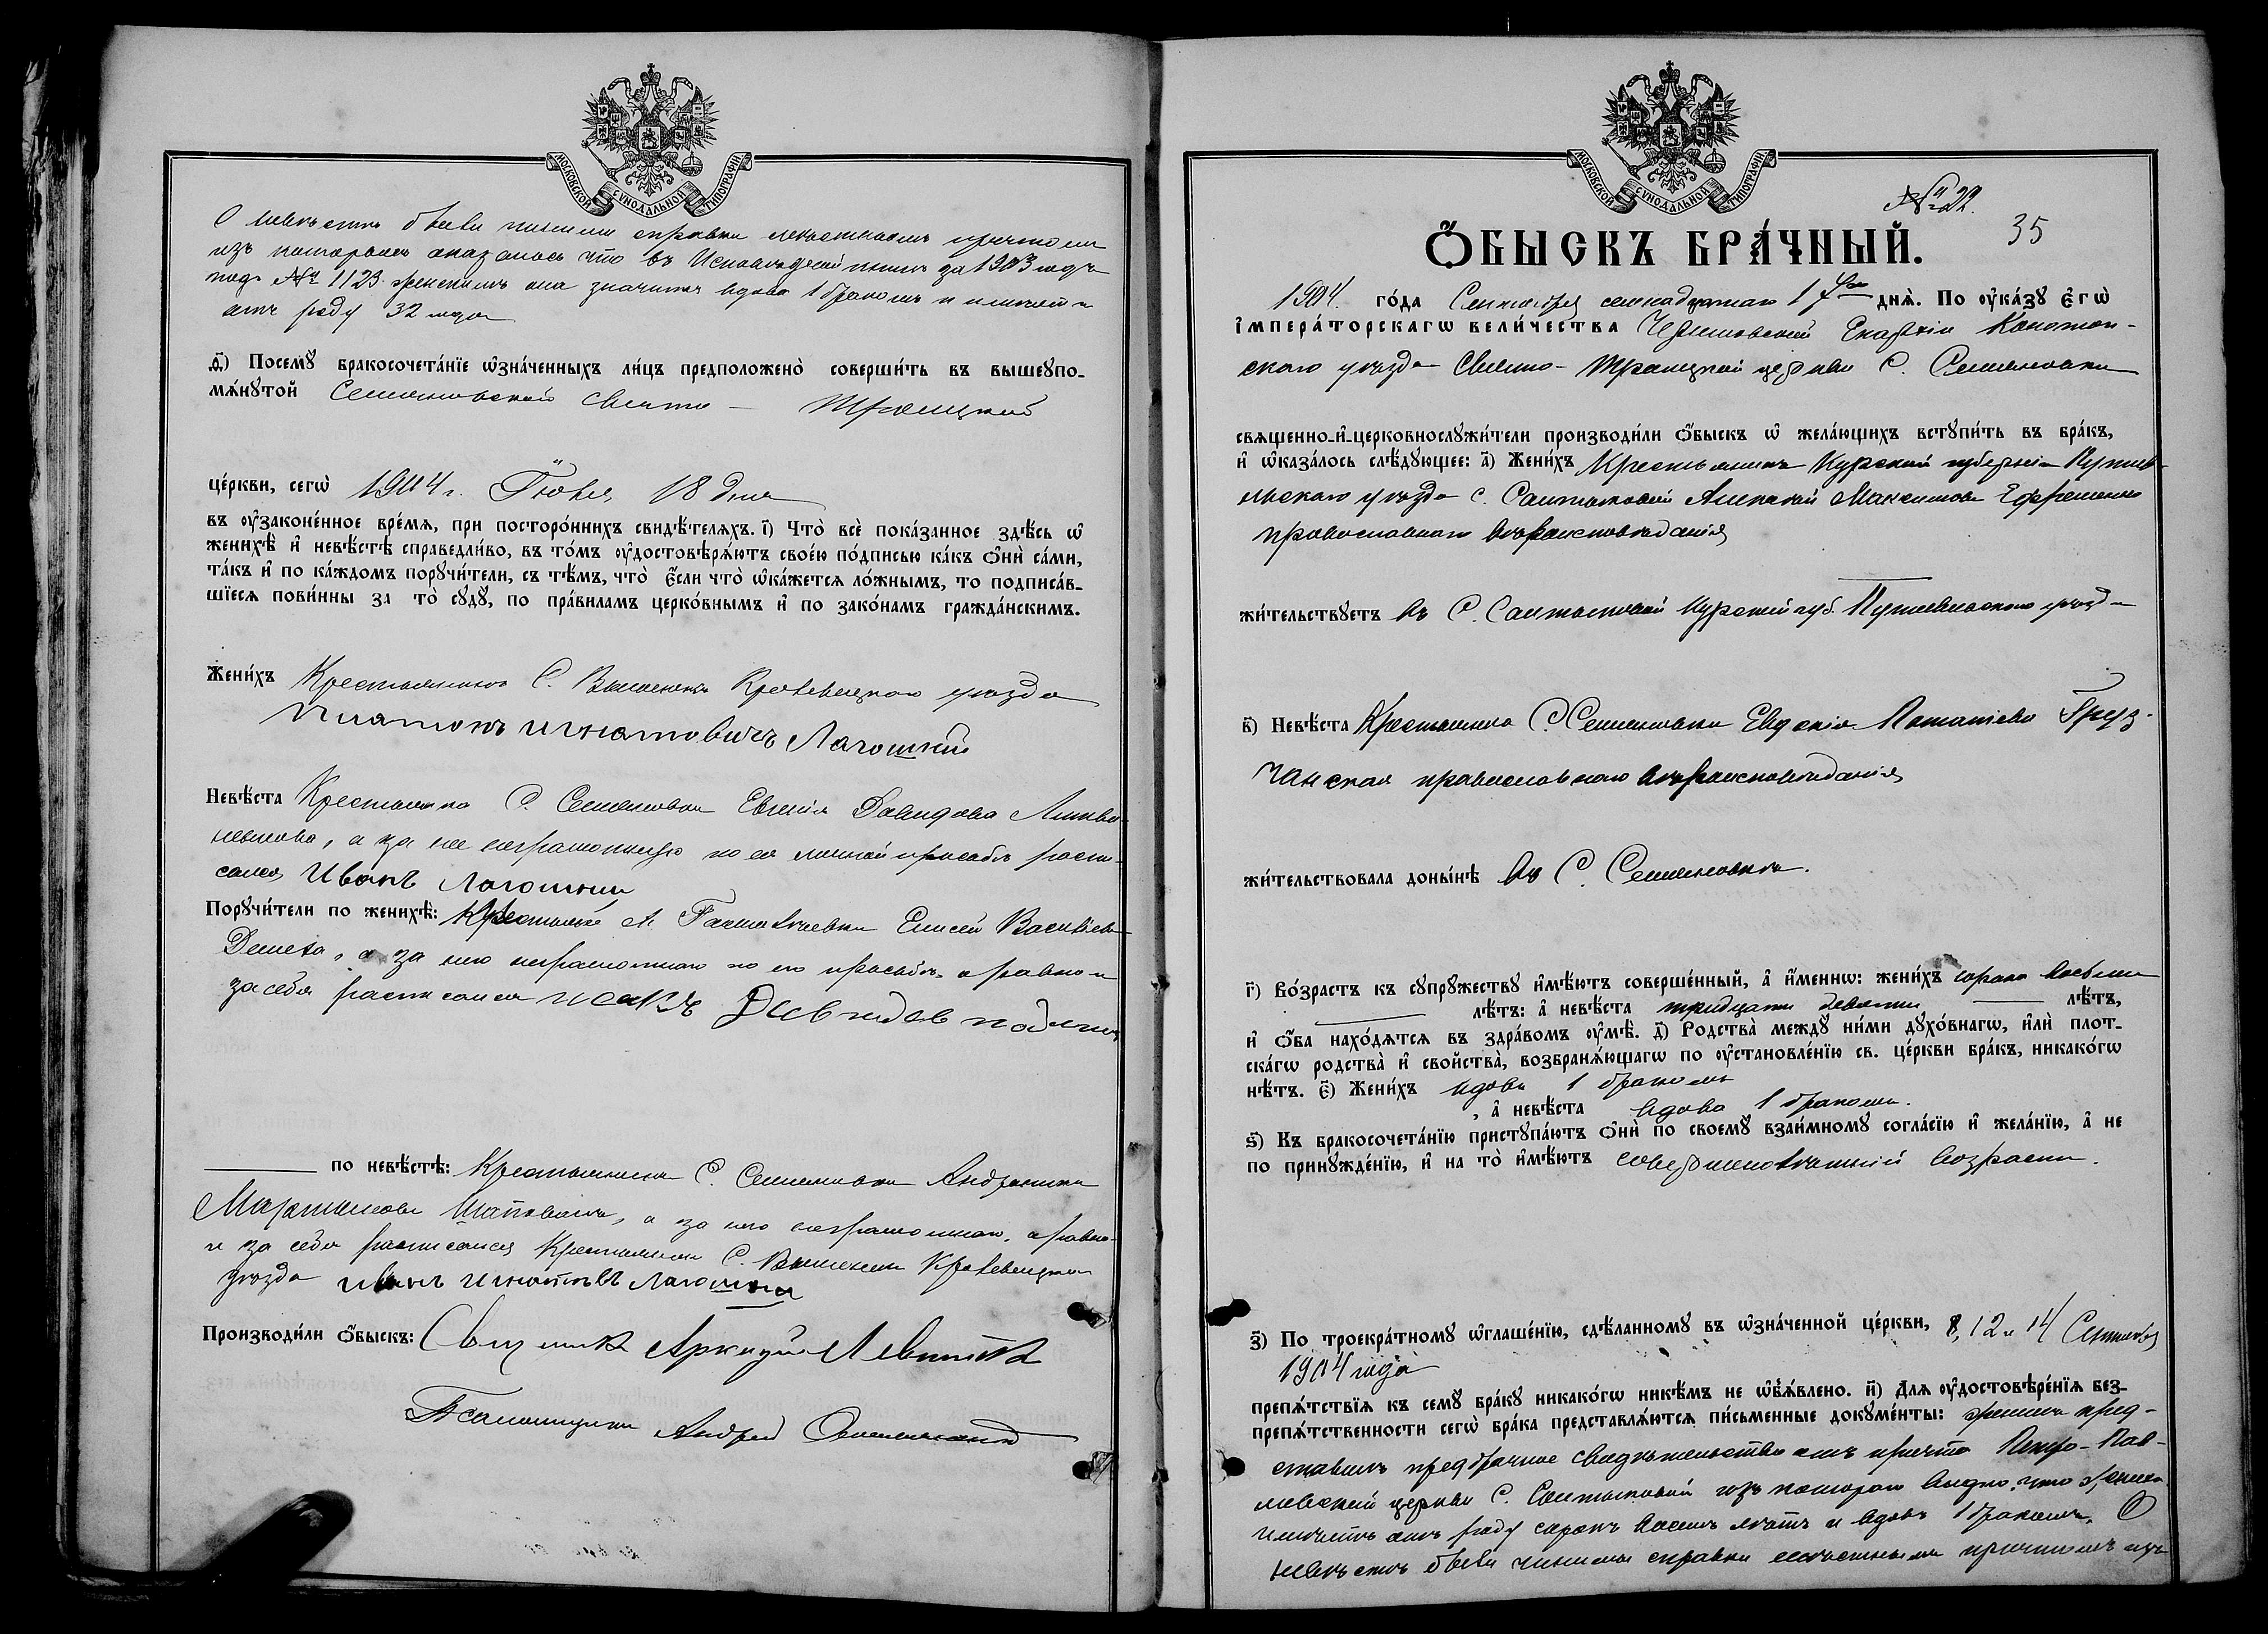 МОСКОВСКОЙ СѴНОДАЛЬНОЙ ТИПОГРАФІИ
О невѣстѣ были чинимы справки мѣстнымъ причтомъ
изъ которыхъ оказалось что въ Исповѣдной книгѣ за 1903 годъ
подъ № 1123 женскимъ она значится вдова 1 бракомъ и имѣетъ
отъ роду 32 года
д҃і) Посемꙋ̀ бракосочета́нїе ѡ҆зна́ченныхъ ли́цъ предположено̀ соверши́ть въ вышеꙋпо-
мѧ́нꙋтой Семеновской Свято - Троицкой
це́ркви, сегѡ̀ 1904 г. Іюля 18 дня
въ ᲂу҆зако́ненное вре́мѧ, при посторо́ннихъ свидѣ́телѧхъ. і҃) Что̀ всѐ пока́занное здѣ́сь ѡ҆
женихѣ̀ и҆ невѣ́стѣ справедли́во, въ то́мъ ᲂу҆достовѣрѧ́ютъ свое́ю по́дписью ка́къ ѻ҆нѝ са́ми,
та́къ и҆ по ка́ждомъ порꙋчи́тели, съ тѣ́мъ, что̀ є҆́сли что̀ ѡ҆ка́жетсѧ ло́жнымъ, то подписа́в-
шїесѧ пови́нны за то̀ сꙋдꙋ̀, по пра́виламъ церко́внымъ и҆ по зако́намъ гражда́нскимъ.
Жени́хъ Крестьянинъ С. Вышенки Кролевецкаго уѣзда
Платонъ Игнатовичъ Лагошній
Невѣ́ста Крестьянка С. Семеновки Евгенія Давидова Литви-
ненкова, а за нее неграмотную по ея личной просьбѣ роспи-
сался Иванъ Лагошній
Порꙋчи́тели по женихѣ̀: Елисей Васильевъ
а за него неграмотнаго по его просьбѣ а равно и
за себя росписался Исакъ
по невѣ́стѣ: Крестьянинъ С. Семеновки Андроникъ
Мартиновъ Шаповалъ, а за него неграмотнаго, а равно
и за себя росписался Крестьянинъ С. Вышенки Кролевецкаго
уѣзда Иванъ Игнатьевъ Лагошній
Производи́ли ѻ҆́быскъ: Священникъ Аркадій Левитскій
Псаломщикъ Андрей
МОСКОВСКОЙ СѴНОДАЛЬНОЙ ТИПОГРАФІИ
№ 22.
35
Ѻ҆́БЫСКЪ БРА́ЧНЫЙ.
1904. го́да Сентября семнадцатаго 17го днѧ̀. По ᲂу҆ка́зꙋ Є҆гѡ̀
І҆мпера́торскагѡ вели́чества Черниговской Епархіи Конотоп-
скаго уѣзда Свято-Троицкой церкви С. Семеновки
свѧщенно-и҆-церковнослꙋжи́тели производи́ли ѻ҆́быскъ ѡ҆ жела́ющихъ встꙋпи́ть въ бра́къ,
и҆ ѡ҆каза́лось слѣ́дꙋющее: а҃) Жени́хъ Крестьянинъ Курской губерніи Путив-
льскаго уѣзда с. Салтыковой Алексѣй Максимовъ Ефременко
православнаго вѣроисповѣданія
жи́тельствꙋетъ въ С. Салтыковой Курской губ. Путивльскаго уѣзда
в҃) Невѣ́ста Крестьянка С. Семеновки Евдокія Потапіева Груз-
чанская православнаго вѣроисповѣданія
жи́тельствовала доны́нѣ въ С. Семеновкѣ.
г҃) Во́зрастъ къ сꙋпрꙋ́жествꙋ и҆мѣ́ютъ соверше́нный, а҆ и҆́меннѡ: жени́хъ сорока восьми
лѣ́тъ: а҆ невѣ́ста тридцати девяти лѣ́тъ,
и҆ ѻ҆́ба нахо́дѧтсѧ въ здра́вомъ ᲂу҆мѣ̀. д҃) Родства̀ междꙋ̀ ни́ми дꙋхо́внагѡ, и҆лѝ плот-
ска́гѡ родства̀ и҆ сво́йства̀, возбранѧ́ющагѡ по ᲂу҆становле́нїю св. це́ркви бра́къ, никако́гѡ
нѣ́тъ. є҃) Жени́хъ вдовъ 1 бракомъ
, а҆ невѣ́ста вдова 1 бракомъ.
ѕ҃) Къ бракосочета́нїю пристꙋпа́ютъ ѻ҆нѝ по своемꙋ̀ взаи́мномꙋ согла́сїю и҆ жела́нїю, а҆ не
по принꙋжде́нїю, и҆ на то̀ и҆мѣ́ютъ совершеннолѣтній возрастъ.
з҃) По троекра́тномꙋ ѡ҆глаше́нїю, сдѣ́ланномꙋ въ ѡ҆зна́ченной це́ркви, 8, 12 и 14 Сентября
1904 года
препѧ́тствїѧ къ семꙋ̀ бра́кꙋ никако́гѡ никѣ́мъ не ѡ҆бъѧ́влено. и҃) Длѧ ᲂу҆достовѣре́нїѧ без-
препѧ́тственности сегѡ̀ бра́ка представлѧ́ютсѧ пи́сьменные докꙋме́нты: женихъ пред-
ставилъ предбрачное свидѣтельство отъ причта Петро-Пав-
ловской церкви С. Салтыковой изъ котораго видно, что женихъ
имѣетъ отъ роду сорокъ восемь лѣтъ и вдовъ 1 бракомъ. О
невѣстѣ были чинимы справки мѣстнымъ причтомъ изъ